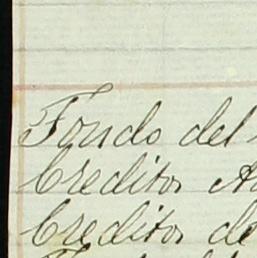 Fondo del
Creditos
Creditos de